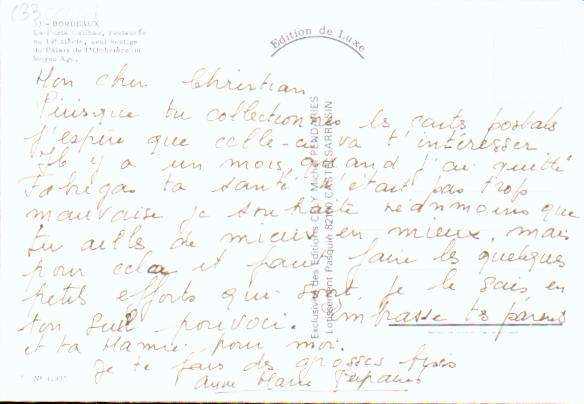 033
33 - BORDEAUX
La Porte Cailhau, restaurée
au 19e siècle, seul vestige
du Palais de l'Ombrière du
Moyen Age.
Edition de Luxe
Mon cher Christian
Puisque tu collectionnes les cartes postales
j'espère que celle-ci va t'intéresser
Il y a un mois, quand j'ai quitté
Fabrégas ta santé n'était pas trop
mauvaise je souhaite néanmoins que
tu ailles de mieux en mieux, mais
pour cela il faut faire les quelques
petits efforts qui sont, je le sais en
ton seul pouvoir. Embrasse tes parents
et ta Mamie pour moi.
Je te fais des grosses bises
Anne Marie
N° 4.035
Exclusivité des Editions CELY Michel PENDARIES
Lotissement Pasquié 82100 CASTELSARRASIN